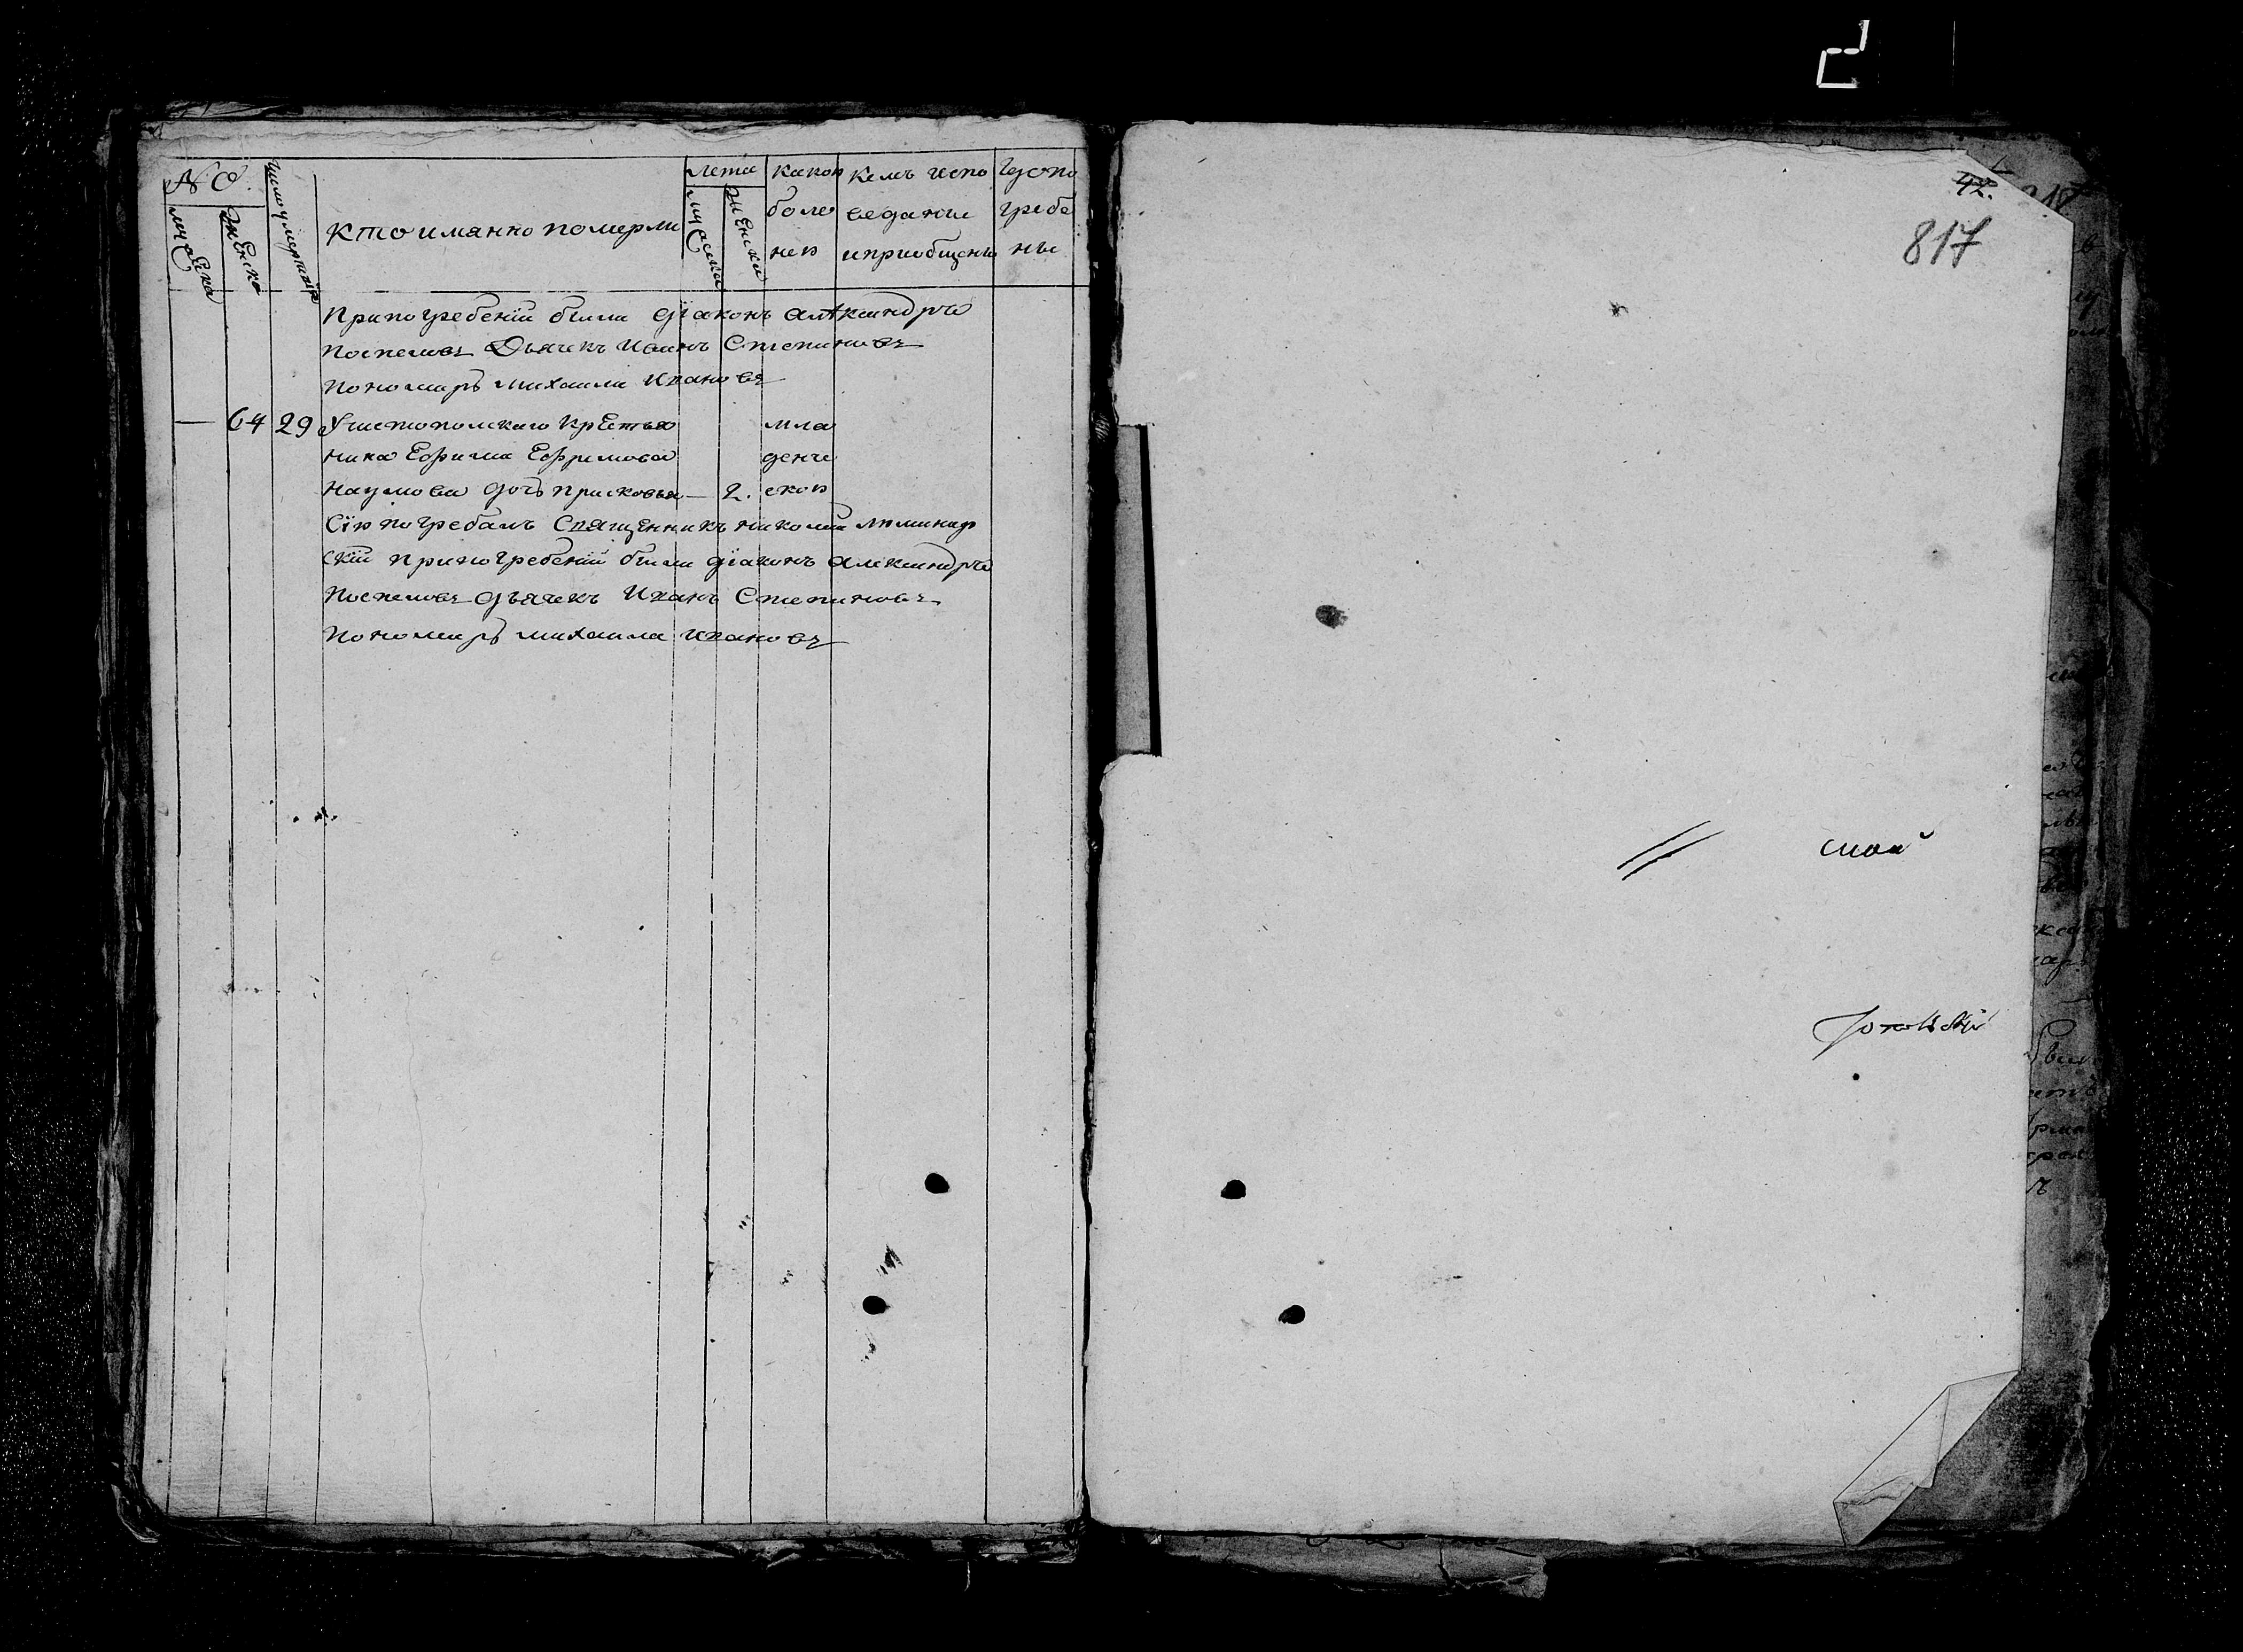 №
муска
женска
число умертвія
кто имянно померли
лета
муска
женска
какою
боле
нею
кемъ испо
веданы
и приобщены
где по
гребе
ны
При погребеніи были діаконъ александръ
поспеловъ Дьячекъ Иванъ Степановъ
пономарь михаила Ивановъ
— 64 29 Чистополскаго крестья
мла
нина Ефима Ефремова
денче
наумова дочь прасковья — 2.
скою
Сію погребалъ Священникъ николай
скій при погребеніи были діаконъ александръ
поспеловъ дьячекъ Иванъ Степановъ
пономарь михаила ивановъ
42.
817